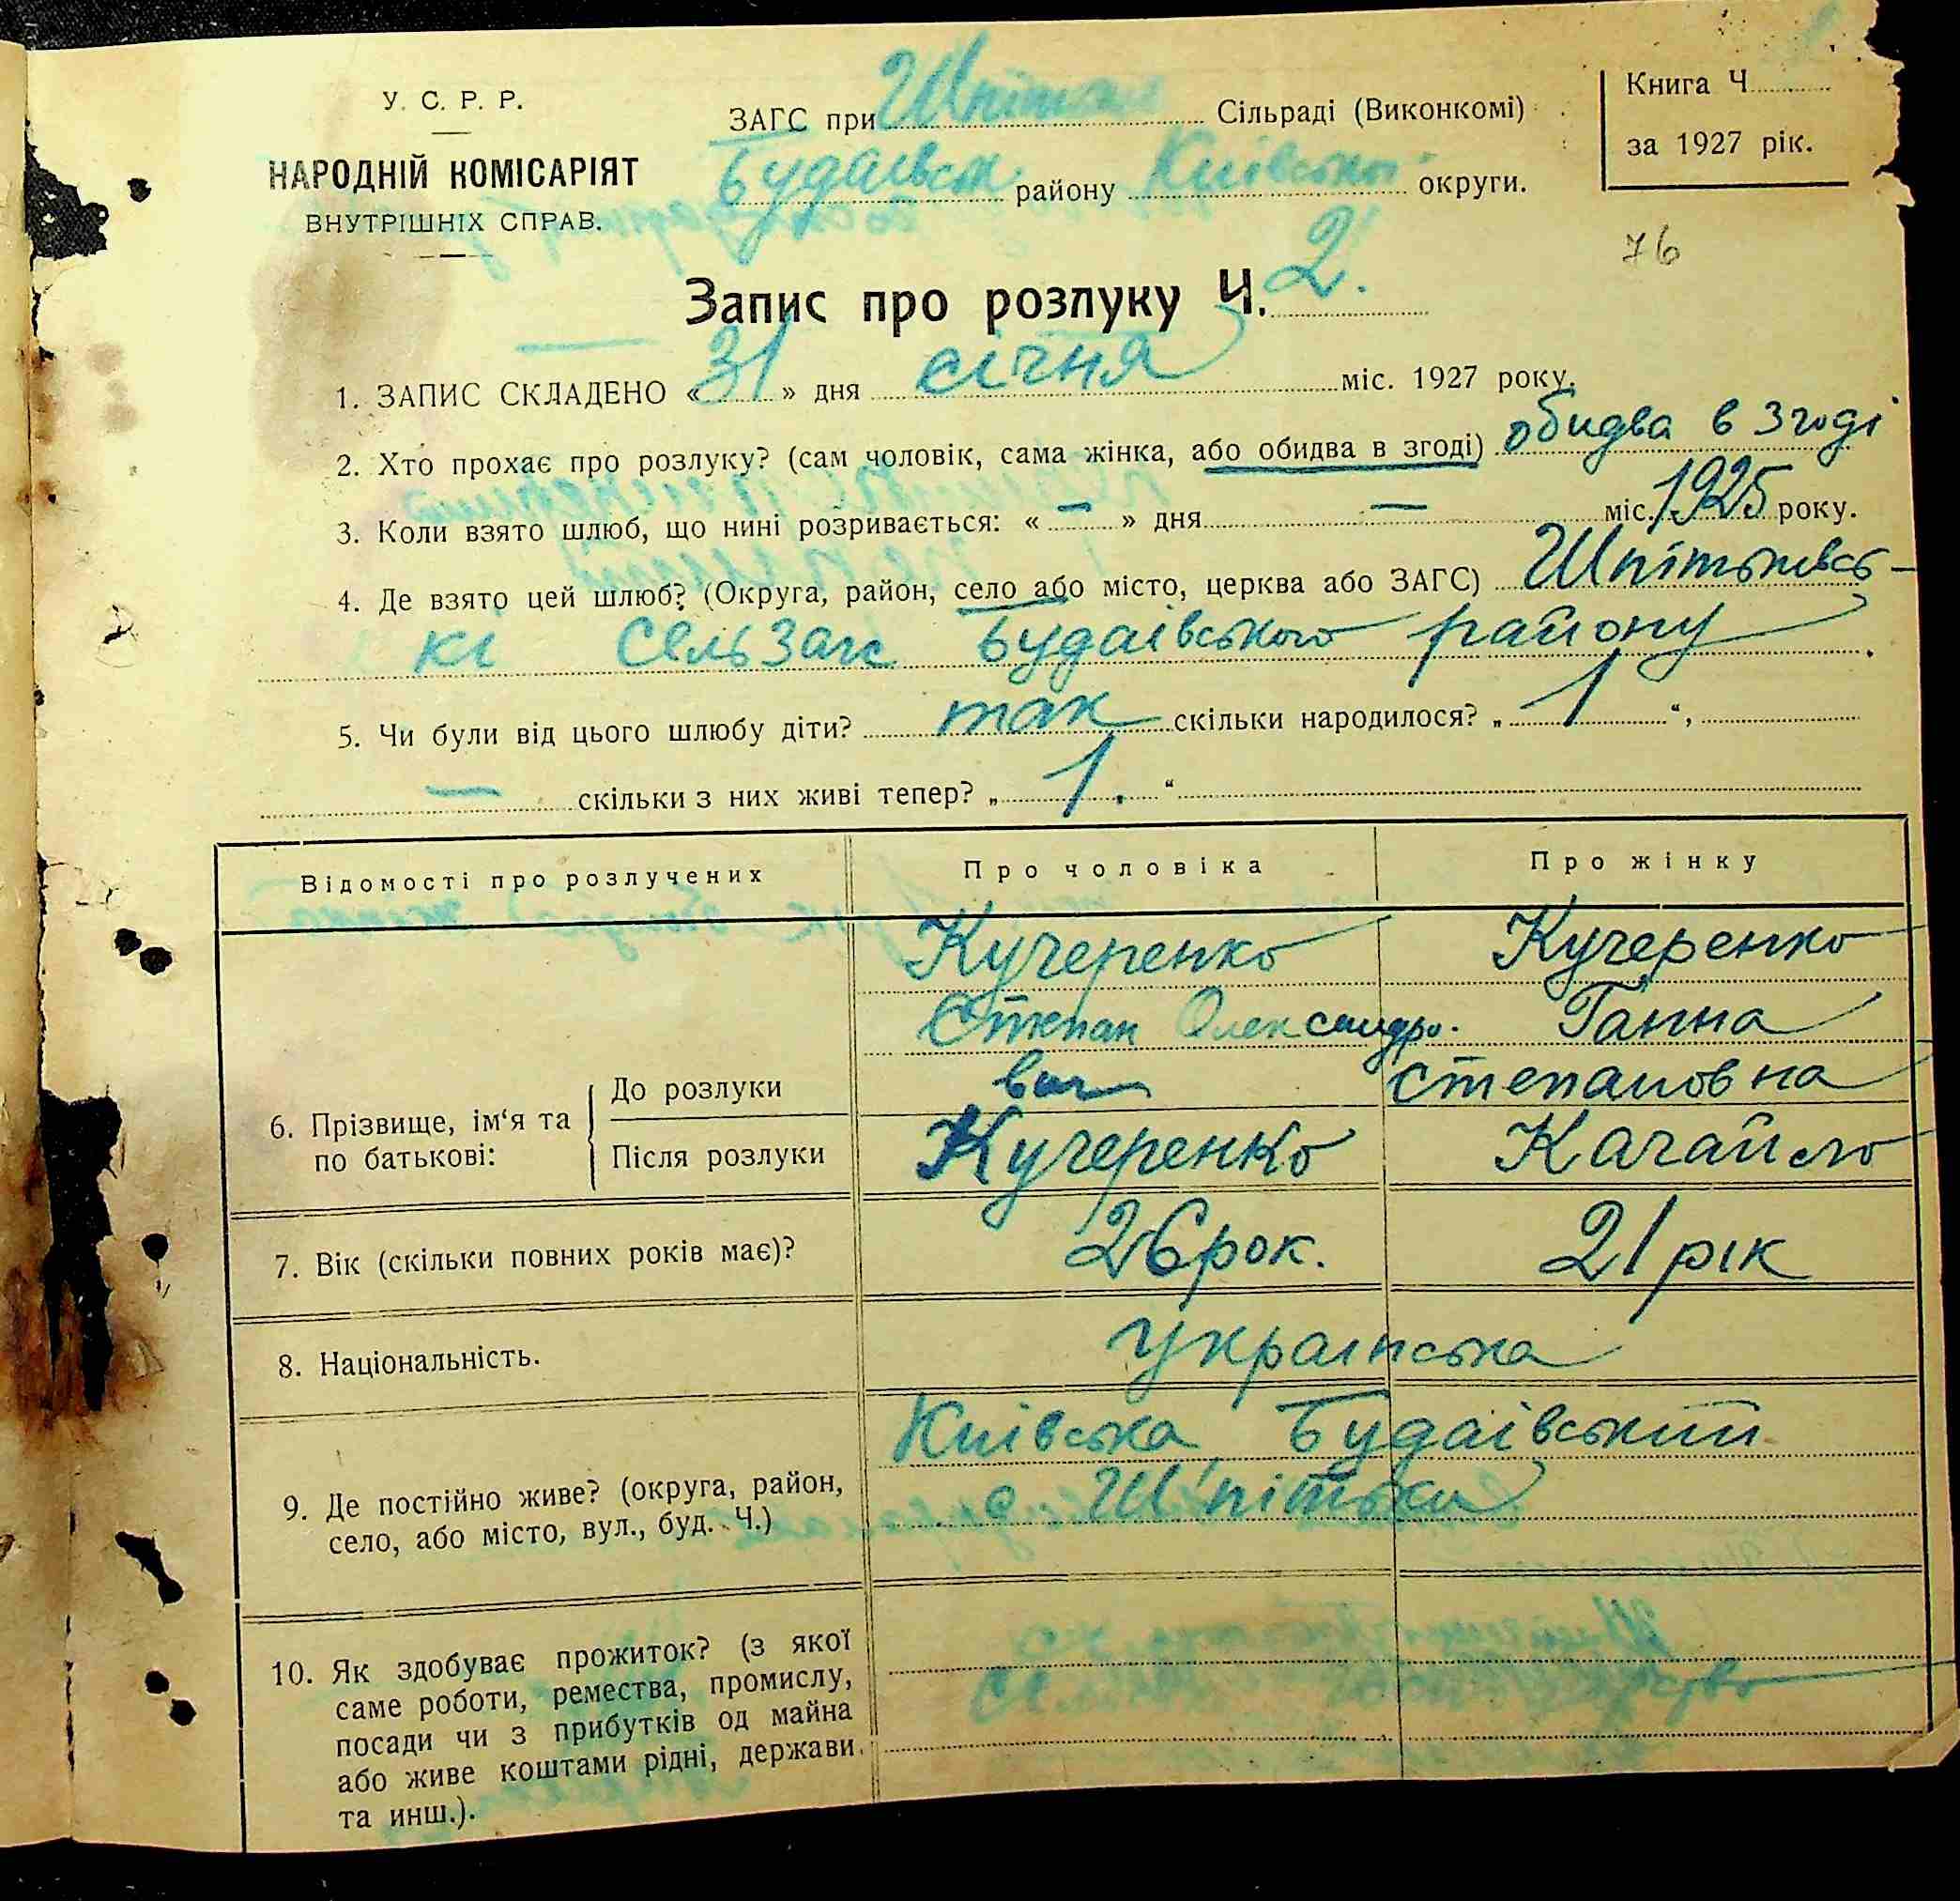 У. С. Р. Р.
НАРОДНІЙ КОМІСАРІЯТ
ВНУТРІШНІХ СПРАВ.
ЗАГС при Шпітьк Сільраді (Виконкомі)
Будаївськ району Київської округи.
Книга Ч.
за 1927 рік.
76
Запис про розлуку Ч. 2.
1. ЗАПИС СКЛАДЕНО «31» дня січня міс. 1927 року.
2. Хто прохає про розлуку? (сам чоловік, сама жінка, або обидва в згоді) обидва в згоді
3. Коли взято шлюб, що нині розривається: « — » дня — міс. 1925 року.
4. Де взято цей шлюб? (Округа, район, село або місто, церква або ЗАГС) Шпітьківсь-
кі СельЗагс Будаівського району
5. Чи були від цього шлюбу діти? так скільки народилося? „ 1 “,
— скільки з них живі тепер? „ 1. “
Відомості про розлучених Про чоловіка Про жінку
Кучеренко Кучеренко
Степан Олександро- Ганна
До розлуки вич Степановна
6. Прізвище, ім‘я та по батькові: Після розлуки Кучеренко Качайло
7. Вік (скільки повних років має)? 26 рок. 21 рік
8. Національність. українська
9. Де постійно живе? (округа, район, Київська Будаівський
село, або місто, вул., буд. Ч.) с Шпітьки
10. Як здобуває прожиток? (з якої
саме роботи, ремества, промислу,
посади чи з прибутків од майна
або живе коштами рідні, держави
та инш.).